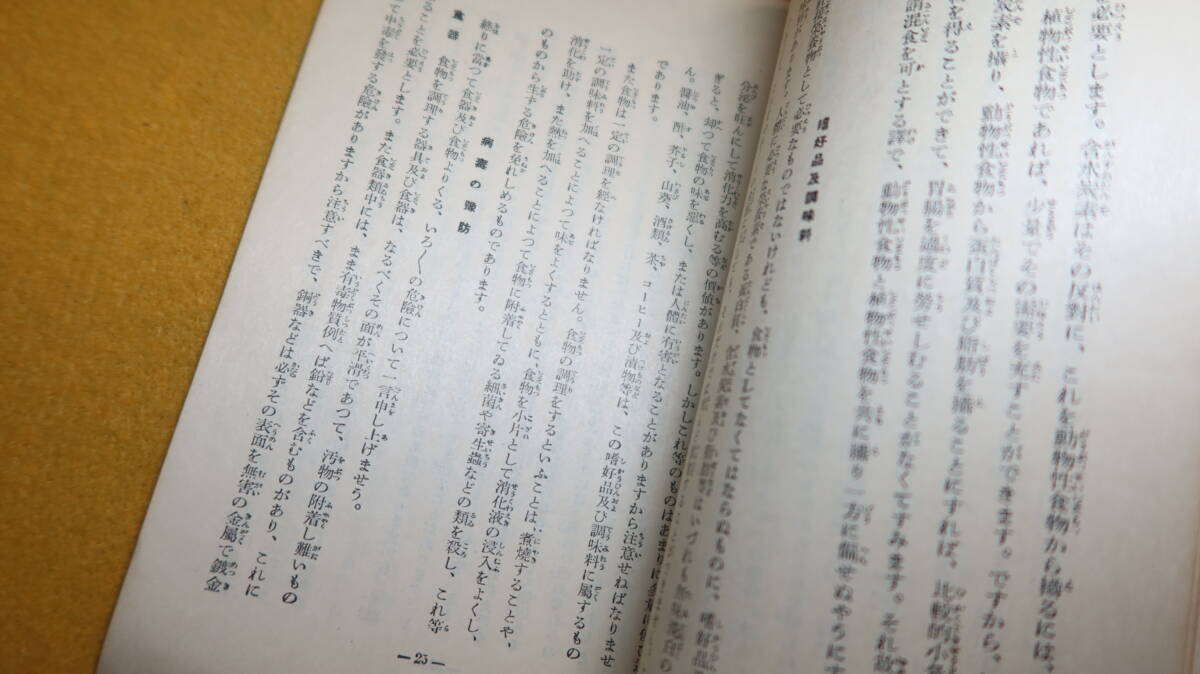 必要とします。含水炭素はその反對に、これを動物性食物から攝るには、
植物性食物であれば、少量でその需要を充すことができます。ですから、
炭素を攝り、動物性食物から蛋白質及び脂肪を攝ることにすれば、比較的小
を得ることができて、胃腸を過度に勞せしむることがなくてすみます。それ故
混食を可とする譯で、動物性食物と植物性食物を共に攝り一方に偏せぬやうに
嗜好品及調味料
食物として必要なものではないけれども、食物としてなくてはならぬものに、嗜好品
分泌を旺んにして消化力を高むる等の價値があります。しかしこれ等のものはあまりに
ぎると、却つて食物の味を惡くし、または人體に有害となることがありますから注意せねばなりませ
ん。醤油、酢、芥子、山葵、酒類、茶、コーヒー及び漬物等は、この嗜好品及び調味料に屬するもの
であります。
また食物は一定の調理を經なければなりません。食物の調理をするといふことは、煮燒することや、
一定の調味料を加へることによつて味をよくするとともに、食物を小片として消化液の浸入をよくし、
消化を助け、また熱を加へることによつて食物に附着してゐる細菌や寄生蟲などの類を殺し、これ等
のものから生ずる危險を免れしめるものであります。
病毒の豫防
終りに當つて食器及び食物よりくる、いろ〱の危險について一言申し上げませう。
食器 食物を調理する器具及び食器は、なるべくその面が平滑であつて、汚物の附着し難いもの
ることを必要とします。また食器類中には、まま有毒物質例へば鉛などを含むものがあり、これに
て中毒を發する危險がありますから注意すべきで、銅器などは必ずその表面を無害の金屬で鍍金
—25—